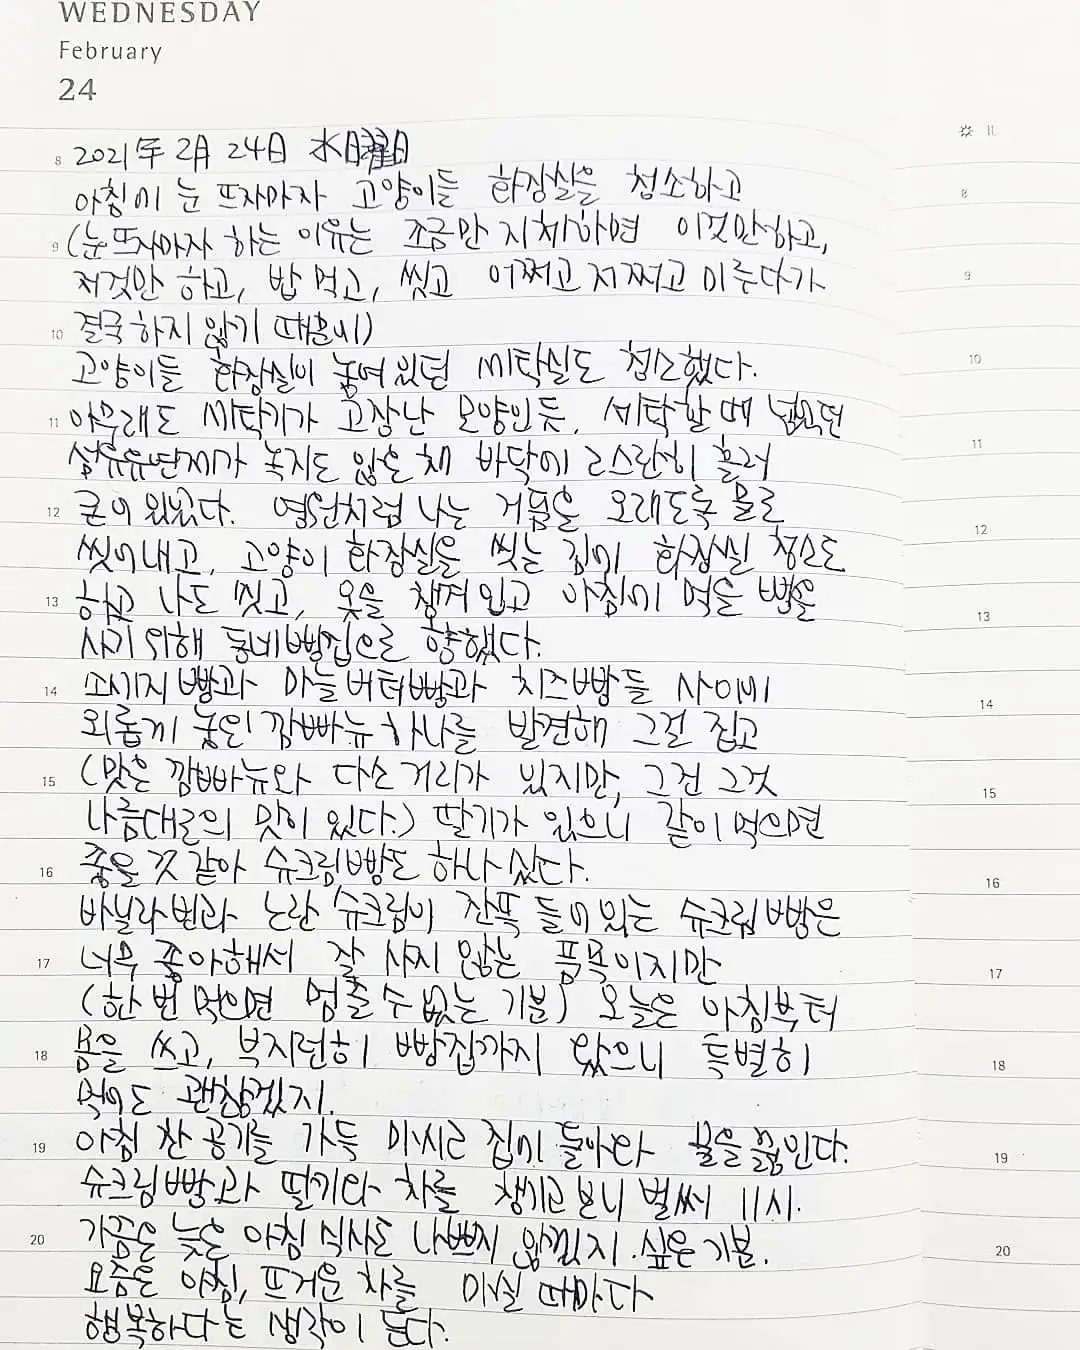 WEDNESDAY
February
24
8 2021年 2月 24日 水日曜日
아침에 눈 뜨자마자 고양이들 화장실을 청소하고
9 (눈뜨자마자 하는 이유는 조금만 지체하면 이것만하고,
저것만 하고, 밥 먹고, 씻고 어쩌고 저쩌고 미루다가
10 결국 하지 않기 때문에)
고양이들 화장실이 놓여있던 세탁실도 청소했다.
11 아무래도 세탁기가 고장난 모양인듯, 세탁할 때 넣었던
섬유유연제가 녹지도 않은 채 바닥에 고스란히 흘러
12 굳어 있었다. 영원처럼 나는 거품을 오래도록 물로
씻어내고, 고양이 화장실을 씻는 김에 화장실 청소도
13 하고 나도 씻고, 옷을 챙겨입고 아침에 먹을 빵을
사기위해 동네빵집으로 향했다.
14 소시지빵과 마늘버터빵과 치즈빵들 사이에
외롭게 놓인 깜빠뉴 하나를 발견해 그걸 집고
15 (맛은 깜빠뉴와 다소 거리가 있지만, 그건 그것
나름대로의 맛이 있다.) 딸기가 있으니 같이먹으면
16 좋을 것 같아 슈크림빵도 하나 샀다.
바닐라빈과 노란 슈크림이 잔뜩 들어있는 슈크림빵은
17 너무 좋아해서 잘 사지 않는 품목이지만
(한 번 먹으면 멈출 수 없는 기분) 오늘은 아침부터
18 몸을 쓰고, 부지런히 빵집까지 왔으니 특별히
먹어도 괜찮겠지.
19 아침 찬 공기를 가득 마시고 집에 돌아와 물을 끓인다.
슈크림빵과 딸기와 차를 챙기고 보니 벌써 11시.
20 가끔은 늦은 아침 식사도 나쁘지 않겠지. 싶은 기분.
요즘은 아침, 뜨거운 차를 마실 때마다
행복하다는 생각이 든다.
8
9
10
11
12
13
14
15
16
17
18
19
20